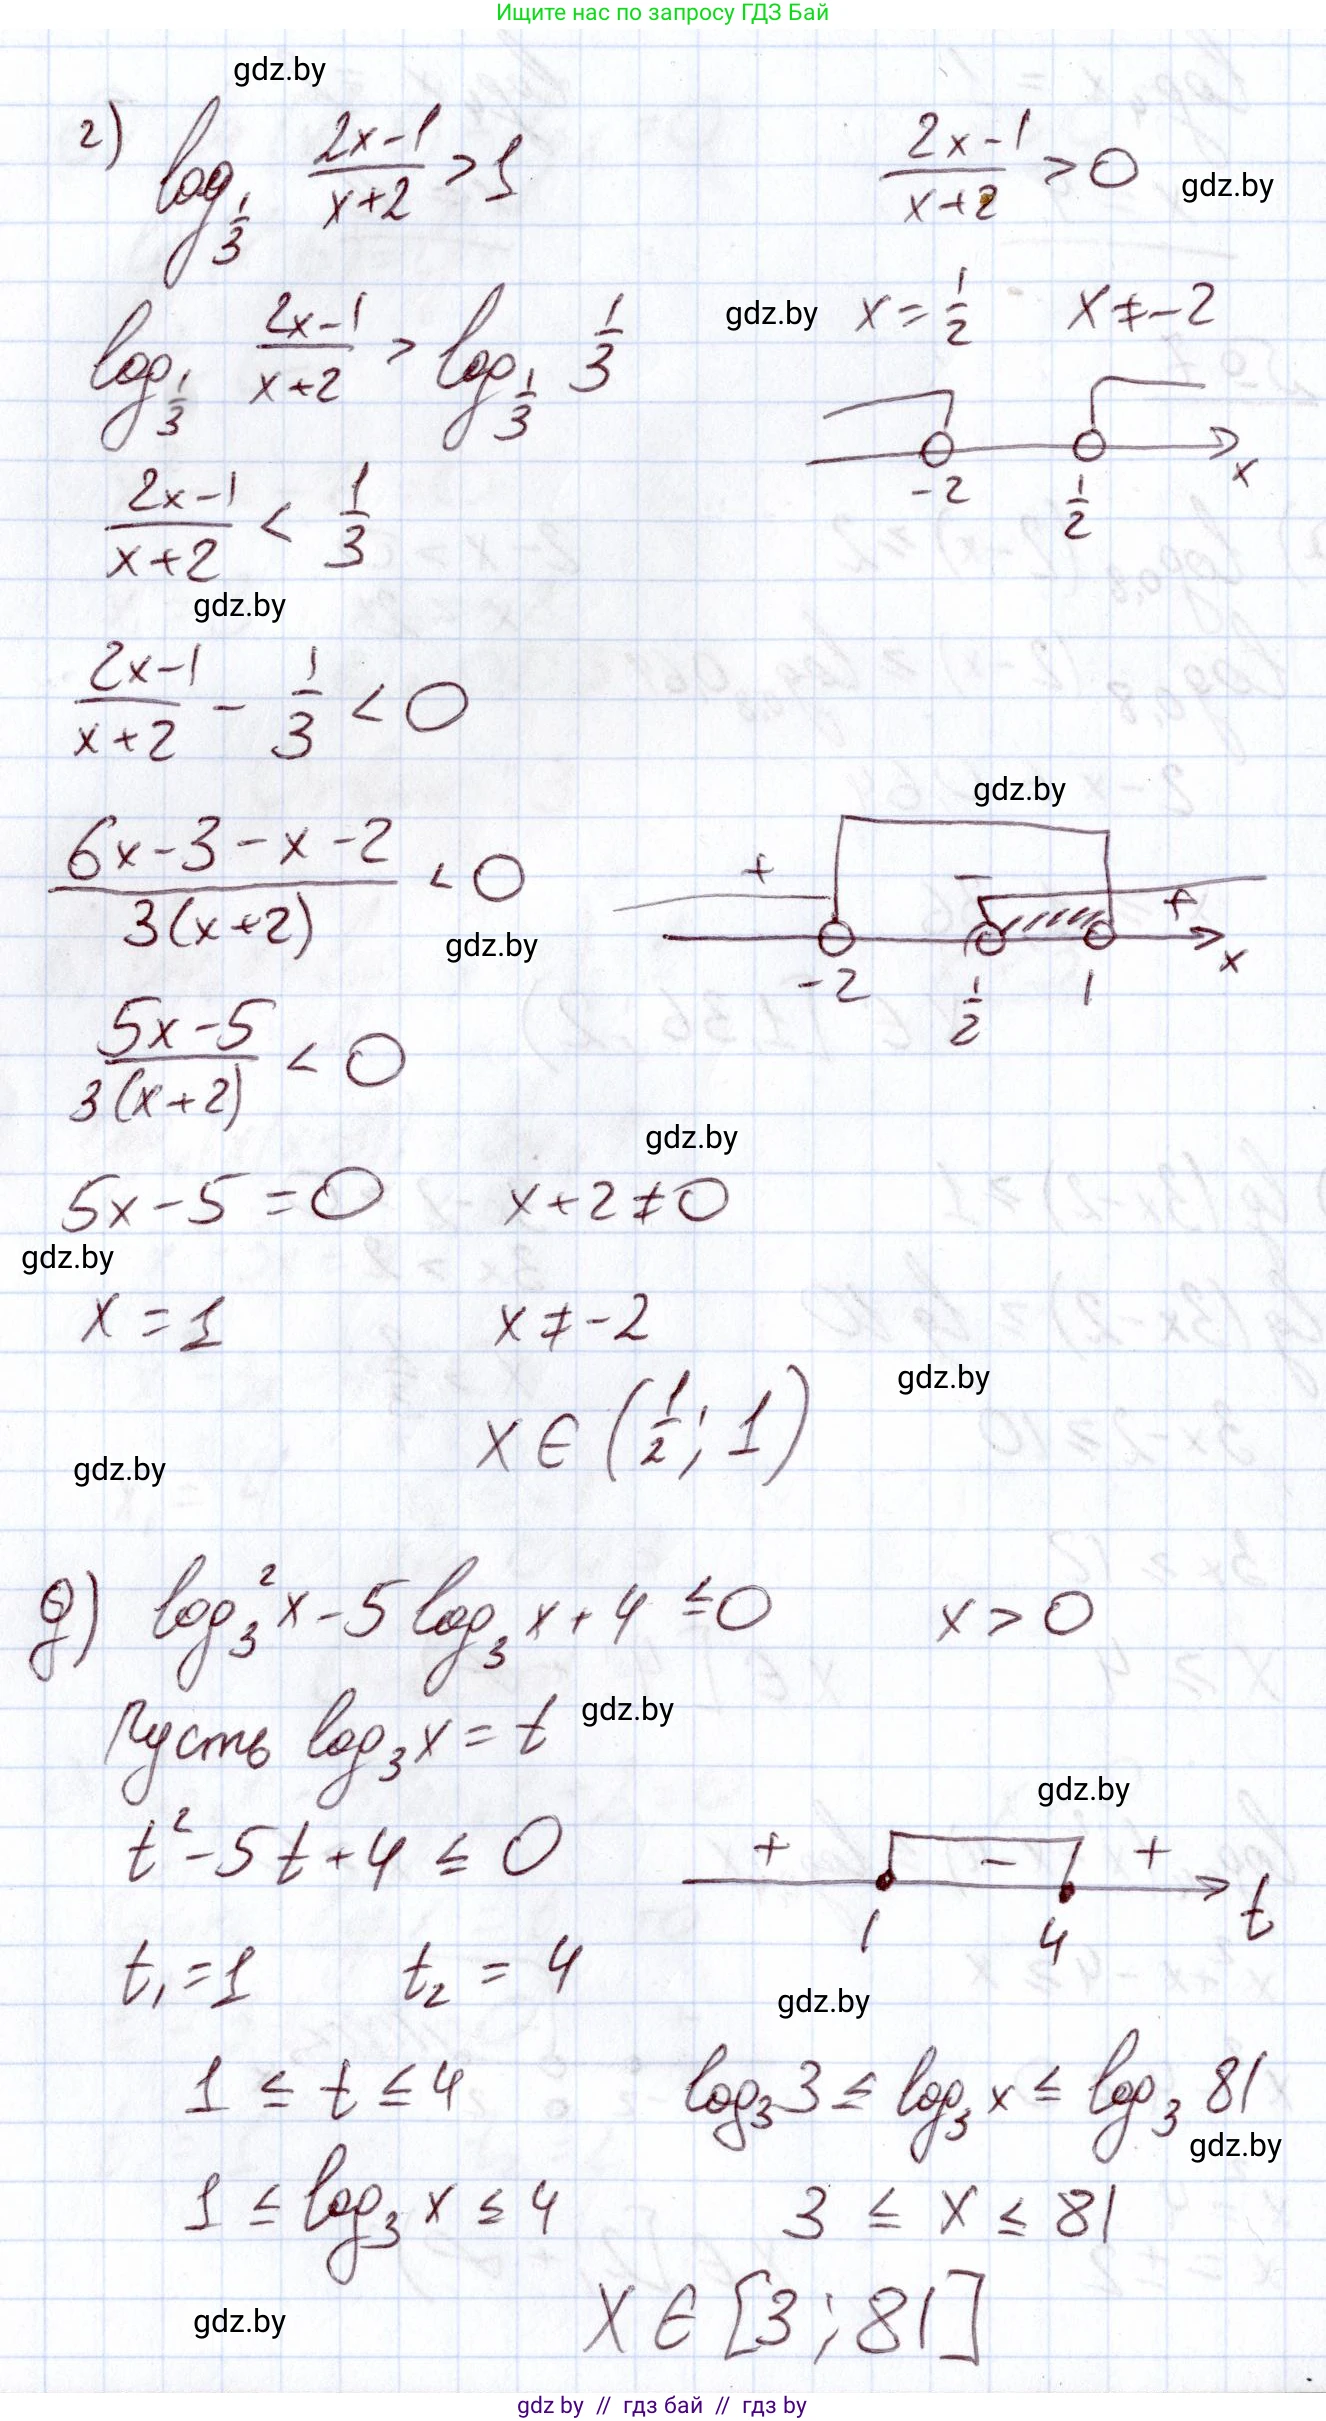 Ищите нас по запросу ГДЗ Бай
gdz.by
г) log_{1/3} (2x-1)/(x+2) > 1
(2x-1)/(x+2) > 0
gdz.by
log_{1/3} (2x-1)/(x+2) > log_{1/3} 1/3
gdz.by
x = 1/2 x ≠ -2
-2 1/2 x
(2x-1)/(x+2) < 1/3
gdz.by
(2x-1)/(x+2) - 1/3 < 0
gdz.by
(6x-3-x-2)/(3(x+2)) < 0
gdz.by
+ - +
-2 1/2 1 x
(5x-5)/(3(x+2)) < 0
gdz.by
5x-5=0 x+2≠0
gdz.by
x=1 x≠-2
gdz.by
x ∈ (1/2; 1)
gdz.by
д) log₃²x - 5 log₃ x + 4 ≤ 0 x > 0
Пусть log₃ x = t
gdz.by
gdz.by
t² - 5t + 4 ≤ 0
+ - +
1 4 t
t₁ = 1 t₂ = 4
gdz.by
1 ≤ t ≤ 4 log₃ 3 ≤ log₃ x ≤ log₃ 81
gdz.by
1 ≤ log₃ x ≤ 4 3 ≤ x ≤ 81
gdz.by
x ∈ [3; 81]
gdz by // гдз бай // гдз by